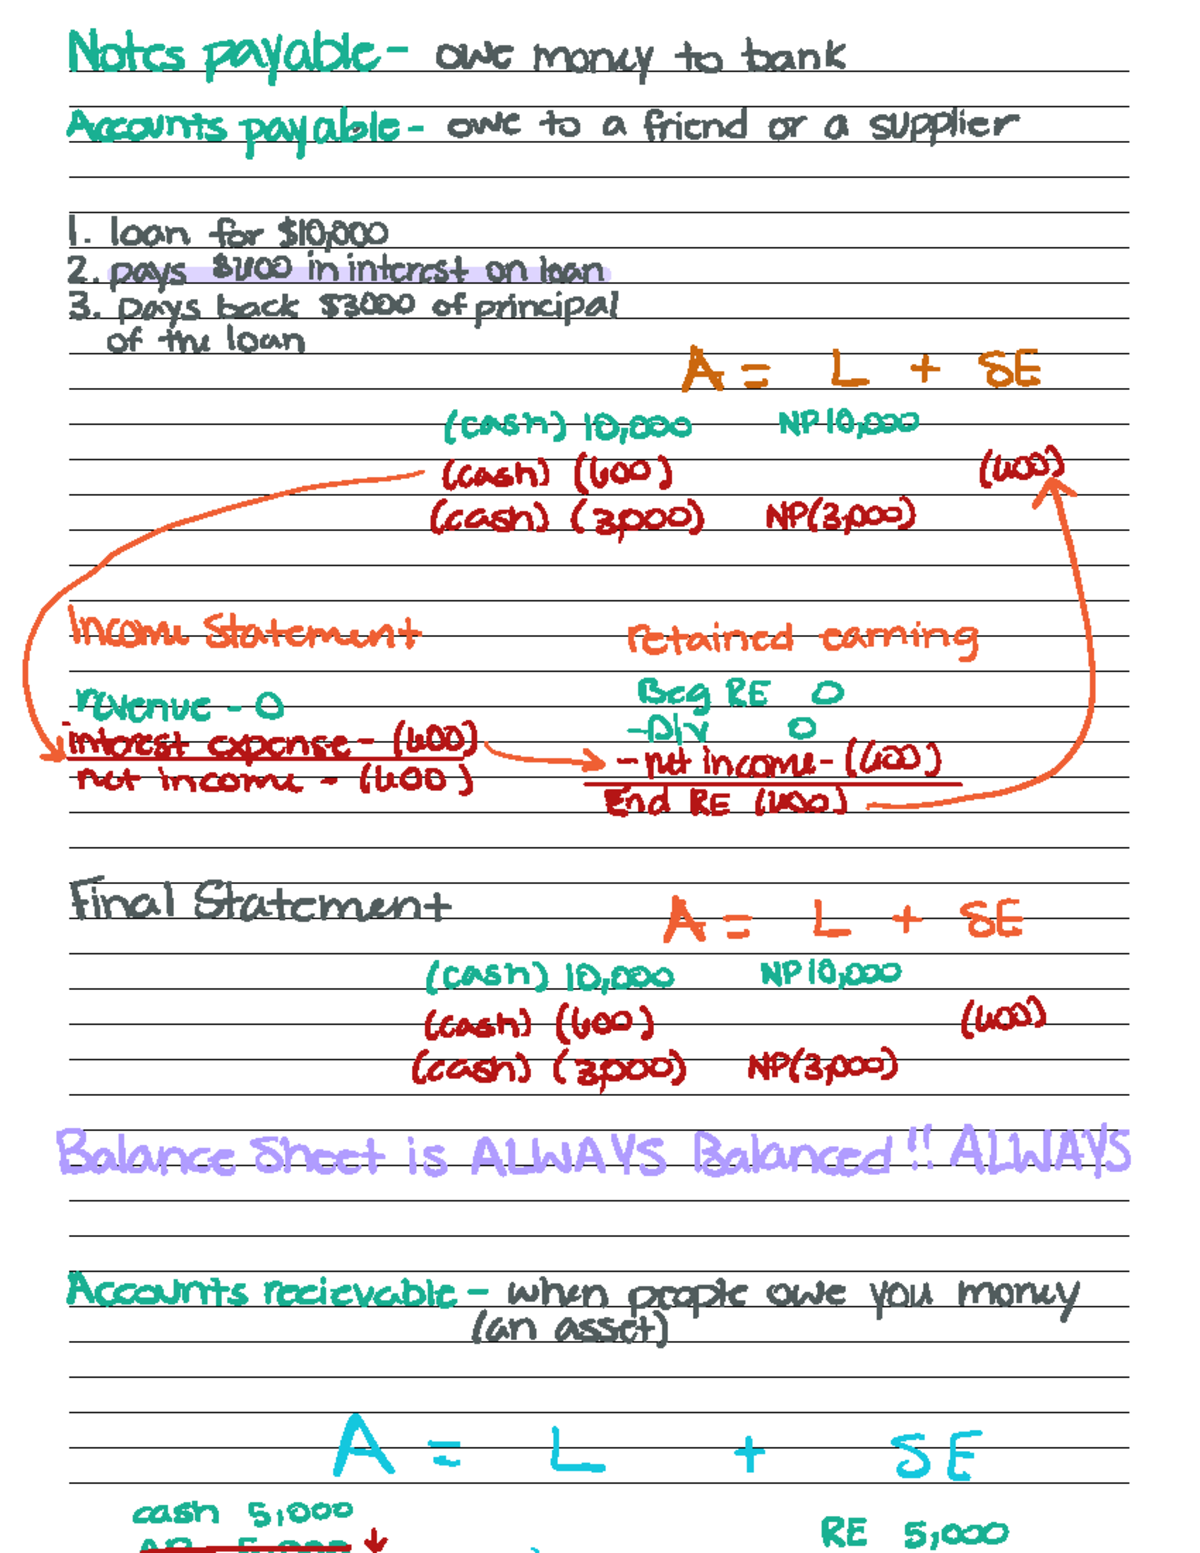 Notes payable- owe money to bank
Accounts payable- owe to a friend or a supplier
1. loan for $10,000
2. pays $600 in interest on loan
3. pays back $3000 of principal
of the loan
A = L + SE
(cash) 10,000 NP 10,000
(cash) (600) (600)
(cash) (3,000) NP(3,000)
Income Statement retained earning
revenue - 0 Beg RE 0
-Div 0
interest expense - (600) - net income - (600)
net income - (600) End RE (600)
Final Statement A = L + SE
(cash) 10,000 NP 10,000
(cash) (600) (600)
(cash) (3,000) NP(3,000)
Balance Sheet is ALWAYS Balanced!! ALWAYS
Accounts recievable - when people owe you money
(an asset)
A = L + SE
cash 5,000 RE 5,000